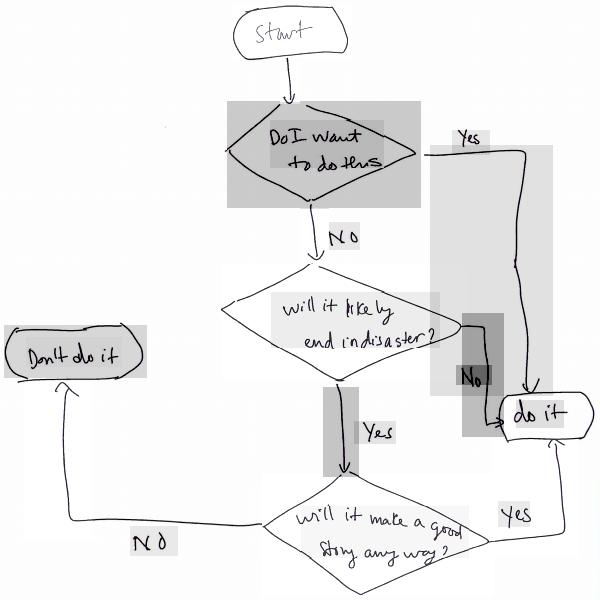 Start
Do I want
to do this
Yes
NO
will it likely
end in disaster?
Don't do it
No
do it
Yes
will it make a good
story any way?
yes
NO